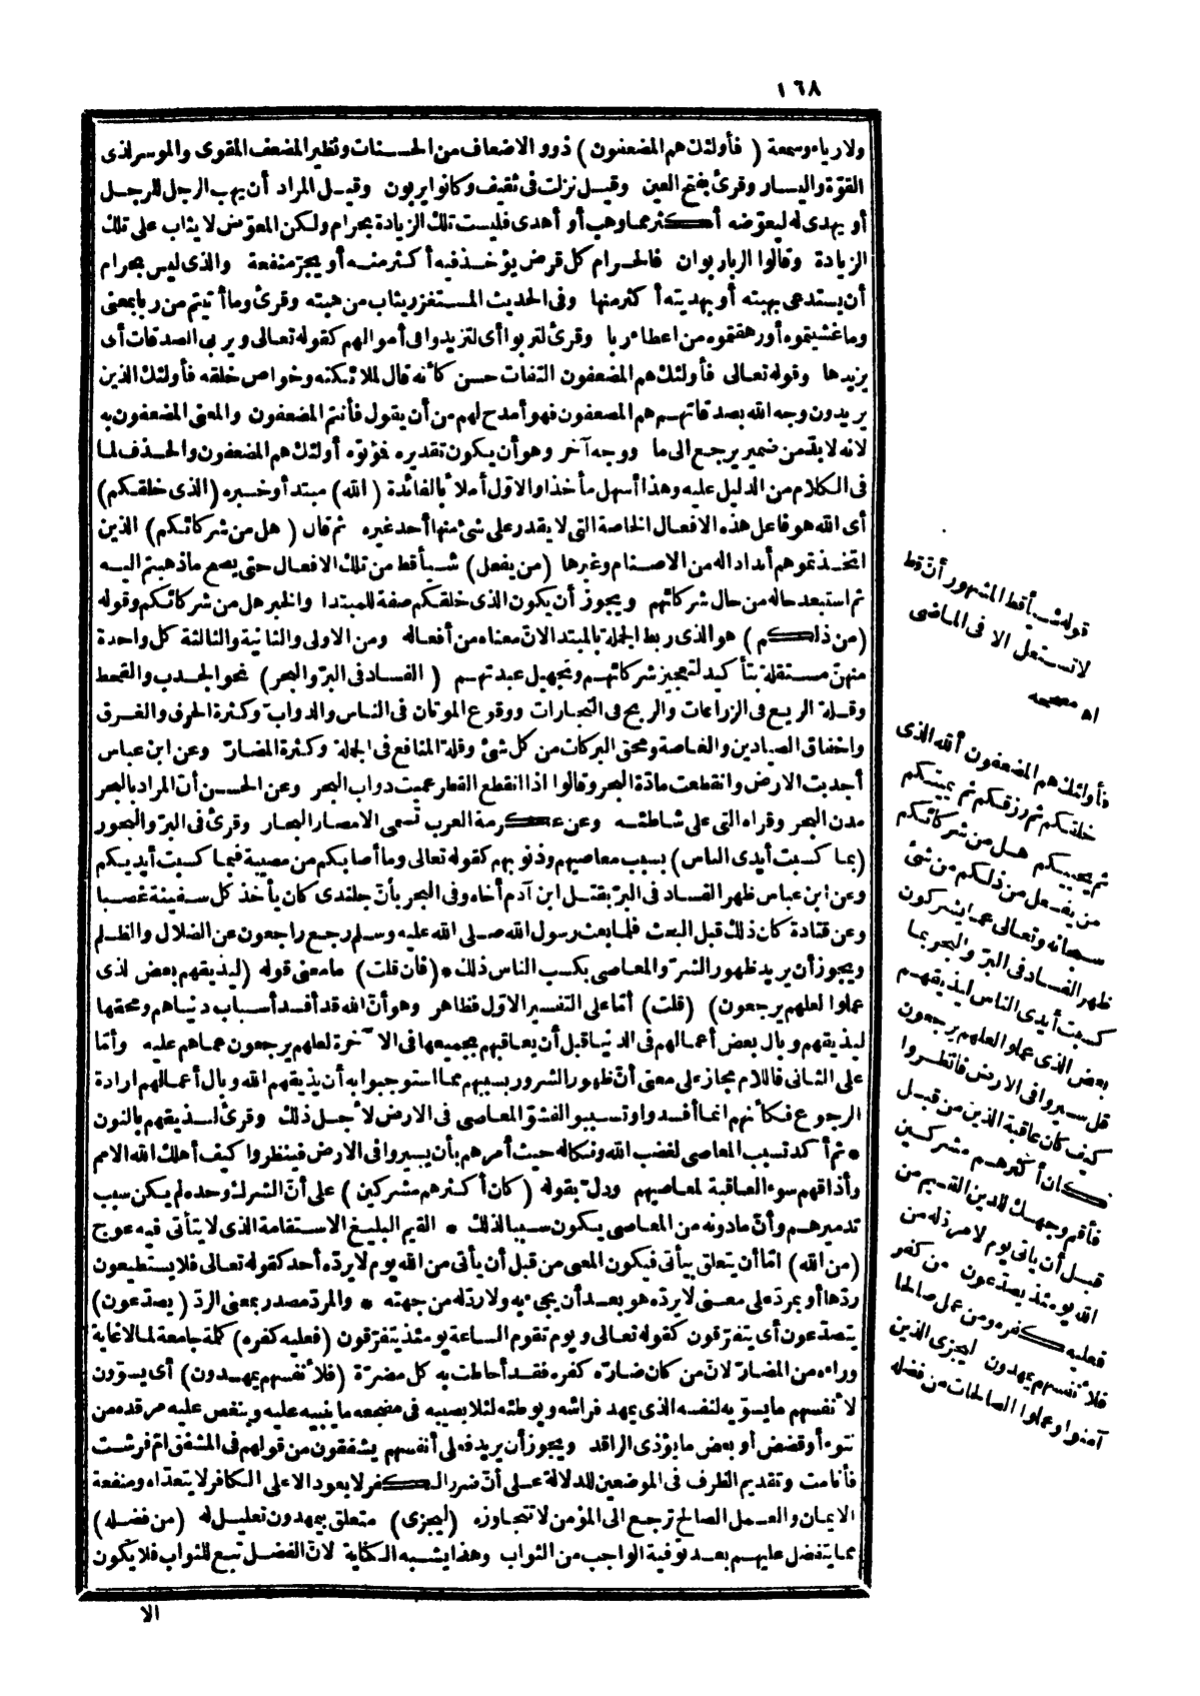 ١٦٨
ولا رياء وسمعة ( فأولئك هم المضعفون ) ذوو الاضعاف من الحسنات ونظير المضعف المقوى والموسر لذى
القوّة واليسار وقرئ بفتح العين وقيل نزلت فى ثقيف وكانوا يربون وقيل المراد أن يهب الرجل للرجل
أو يهدى له ليعوّضه أكثر مما وهب أو أهدى فليست تلك الزيادة بحرام ولكن المعوّض لا يثاب على تلك
الزيادة وقالوا الربا ربوان فالحرام كل قرض يؤخذ فيه أكثر منه أو يجرّ منفعة والذى ليس بحرام
أن يستدعى بهبته أو بهديته أكثر منها وفى الحديث المستغزر يثاب من هبته وقرئ وما أتيتم من ربا بمعنى
وما غشيتموه أو رهقتموه من اعطاء ربا وقرئ لتربوا أى لتزيدوا فى أموالهم كقوله تعالى ويربى الصدقات أى
يزيدها وقوله تعالى فأولئك هم المضعفون التفات حسن كأنه قال لملائكته وخواص خلقه فأولئك الذين
يريدون وجه الله بصدقاتهم هم المضعفون فهو أمدح لهم من أن يقول فأنتم المضعفون والمعنى المضعفون به
لانه لابدّ من ضمير يرجع الى ما ووجه آخر وهو أن يكون تقديره فمؤتوه أولئك هم المضعفون والحذف لما
فى الكلام من الدليل عليه وهذا أسهل مأخذا والاوّل أملأ بالفائدة ( الله ) مبتدأ وخبره ( الذى خلقكم )
أى الله هو فاعل هذه الافعال الخاصة التى لا يقدر على شئ منها أحد غيره ثم قال ( هل من شركائكم ) الذين
اتخذتموهم أندادا له من الاصنام وغيرها ( من يفعل ) شيأ قط من تلك الافعال حتى يصح ما ذهبتم اليه
ثم استبعد حاله من حال شركائهم ويجوز أن يكون الذى خلقكم صفة للمبتدا والخبر هل من شركائكم وقوله
( من ذلكم ) هو الذى ربط الجملة بالمبتدا لانّ معناه من أفعاله ومن الاولى والثانية والثالثة كل واحدة
منهنّ مستقلة بتأكيد لتعجيز شركائهم وتجهيل عبدتهم ( الفساد فى البرّ والبحر ) نحو الجدب والقحط
وقلة الريع فى الزراعات والربح فى التجارات ووقوع الموتان فى الناس والدوابّ وكثرة الحرق والغرق
واخفاق الصيادين والغاصة ومحق البركات من كل شئ وقلة المنافع فى الجملة وكثرة المضارّ وعن ابن عباس
أجدبت الارض وانقطعت مادّة البحر وقالوا اذا انقطع القطر عميت دواب البحر وعن الحسن أنّ المراد بالبحر
مدن البحر وقراه التى على شاطئه وعن عكرمة العرب تسمى الامصار البحار وقرئ فى البرّ والبحور
( بما كسبت أيدى الناس ) بسبب معاصيهم وذنوبهم كقوله تعالى وما أصابكم من مصيبة فبما كسبت أيديكم
وعن ابن عباس ظهر الفساد فى البرّ بقتل ابن آدم أخاه وفى البحر بأنّ جلندى كان يأخذ كل سفينة غصبا
وعن قتادة كان ذلك قبل البعث فلما بعث رسول الله صلى الله عليه وسلم رجع راجعون عن الضلال والظلم
ويجوز أن يريد ظهور الشرّ والمعاصى بكسب الناس ذلك * ( فان قلت ) ما معنى قوله ( ليذيقهم بعض الذى
عملوا لعلهم يرجعون ) ( قلت ) أمّا على التفسير الاوّل فظاهر وهو أنّ الله قد أفسد أسباب دنياهم ومحقها
ليذيقهم وبال بعض أعمالهم فى الدنيا قبل أن يعاقبهم بجميعها فى الآخرة لعلهم يرجعون عما هم عليه وأمّا
على الثانى فاللام مجاز على معنى أنّ ظهور الشرور بسببهم مما استوجبوا به أن يذيقهم الله وبال أعمالهم ارادة
الرجوع فكأنهم انما أفسدوا وتسببوا لفشوّ المعاصى فى الارض لأجل ذلك وقرئ لنذيقهم بالنون
* ثم أكد تسبب المعاصى لغضب الله ونكاله حيث أمرهم بأن يسيروا فى الارض فينظروا كيف أهلك الله الامم
وأذاقهم سوء العاقبة لمعاصيهم ودلّ بقوله ( كان أكثرهم مشركين ) على أنّ الشرك وحده لم يكن سبب
تدميرهم وأنّ ما دونه من المعاصى يكون سببا لذلك * القيم البليغ الاستقامة الذى لا يتأتى فيه عوج
( من الله ) امّا أن يتعلق بيأتى فيكون المعنى من قبل أن يأتى من الله يوم لا يردّه أحد كقوله تعالى فلا يستطيعون
ردّها أو بمردّ على معنى لا يردّه هو بعد أن يجىء به ولا ردّ له من جهته * والمردّ مصدر بمعنى الردّ ( يصدّعون )
يتصدّعون أى يتفرّقون كقوله تعالى ويوم تقوم الساعة يومئذ يتفرّقون ( فعليه كفره ) كلمة جامعة لما لا غاية
وراءه من المضارّ لانّ من كان ضارّه كفره فقد أحاطت به كل مضرّة ( فلأنفسهم يمهدون ) أى يسوّون
لأنفسهم ما يسوّيه لنفسه الذى يمهد فراشه ويوطئه لئلا يصيبه فى مضجعه ما ينبيه عليه وينغص عليه مرقده من
نتوء أو قضض أو بعض ما يؤذى الراقد ويجوز أن يريد فعلى أنفسهم يشفقون من قولهم فى المشفق امّ فرشت
فأنامت وتقديم الظرف فى الموضعين للدلالة على أنّ ضرر الكفر لا يعود الا على الكافر لا يتعدّاه ومنفعة
الايمان والعمل الصالح ترجع الى المؤمن لا تتجاوزه ( ليجزى ) متعلق بيمهدون تعليل له ( من فضله )
مما يتفضل عليهم بعد توفية الواجب من الثواب وهذا يشبه الكناية لانّ الفضل تبع للثواب فلا يكون
الا
قوله شيأ قط المشهور أنّ قط
لا تستعمل الا فى الماضى
اه مصححه
فأولئك هم المضعفون ألله الذى
خلقكم ثم رزقكم ثم يميتكم
ثم يحييكم هل من شركائكم
من يفعل من ذلكم من شئ
سبحانه وتعالى عما يشركون
ظهر الفساد فى البرّ والبحر بما
كسبت أيدى الناس ليذيقهم
بعض الذى عملوا لعلهم يرجعون
قل سيروا فى الارض فانظروا
كيف كان عاقبة الذين من قبل
كان أكثرهم مشركين
فأقم وجهك للدين القيم من
قبل أن يأتى يوم لا مردّ له من
الله يومئذ يصدّعون من كفر
فعليه كفره ومن عمل صالحا
فلأنفسهم يمهدون ليجزى الذين
آمنوا وعملوا الصالحات من فضله